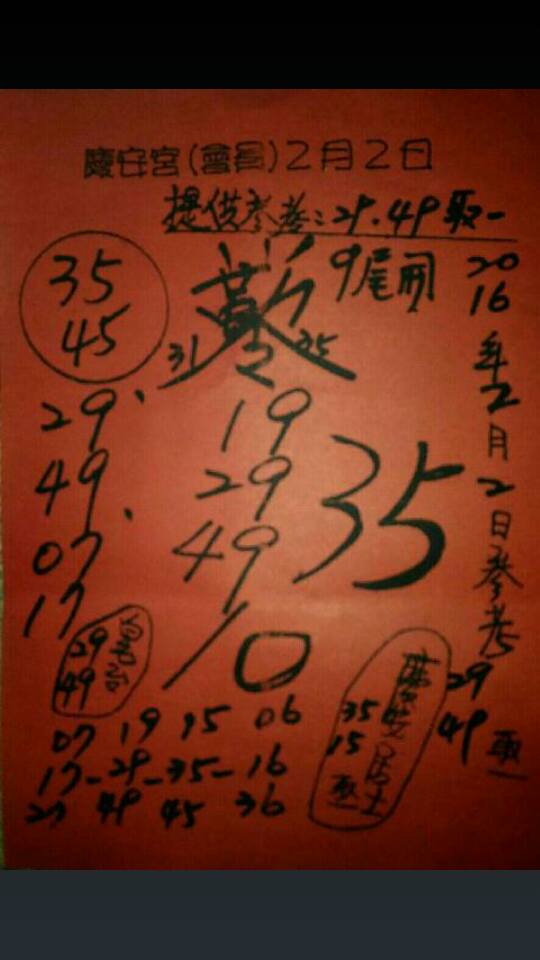 慶安宮(會員)2月2日
提供參考:29.49取一
35
45
9尾開
31 35
2016年2月2日參考
29
49取
29
49
07
17
19
29
49
10
35
29
49
35
15
取
07 19 15 06
17-29-35-16
27 49 45 36